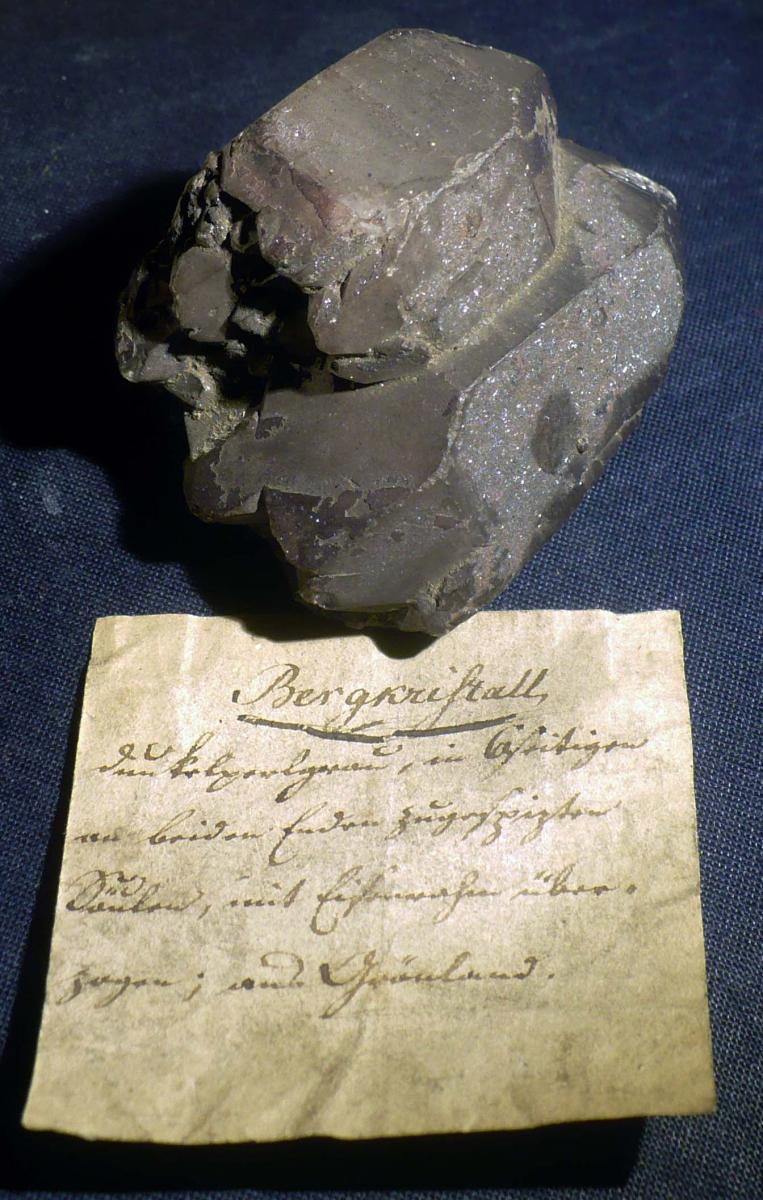 Bergkristall,
dunkelperlgrau, in 6seitigen
an beiden Enden zugespizten
Säulen, mit Eisenrahm über-
zogen; aus Grönland.